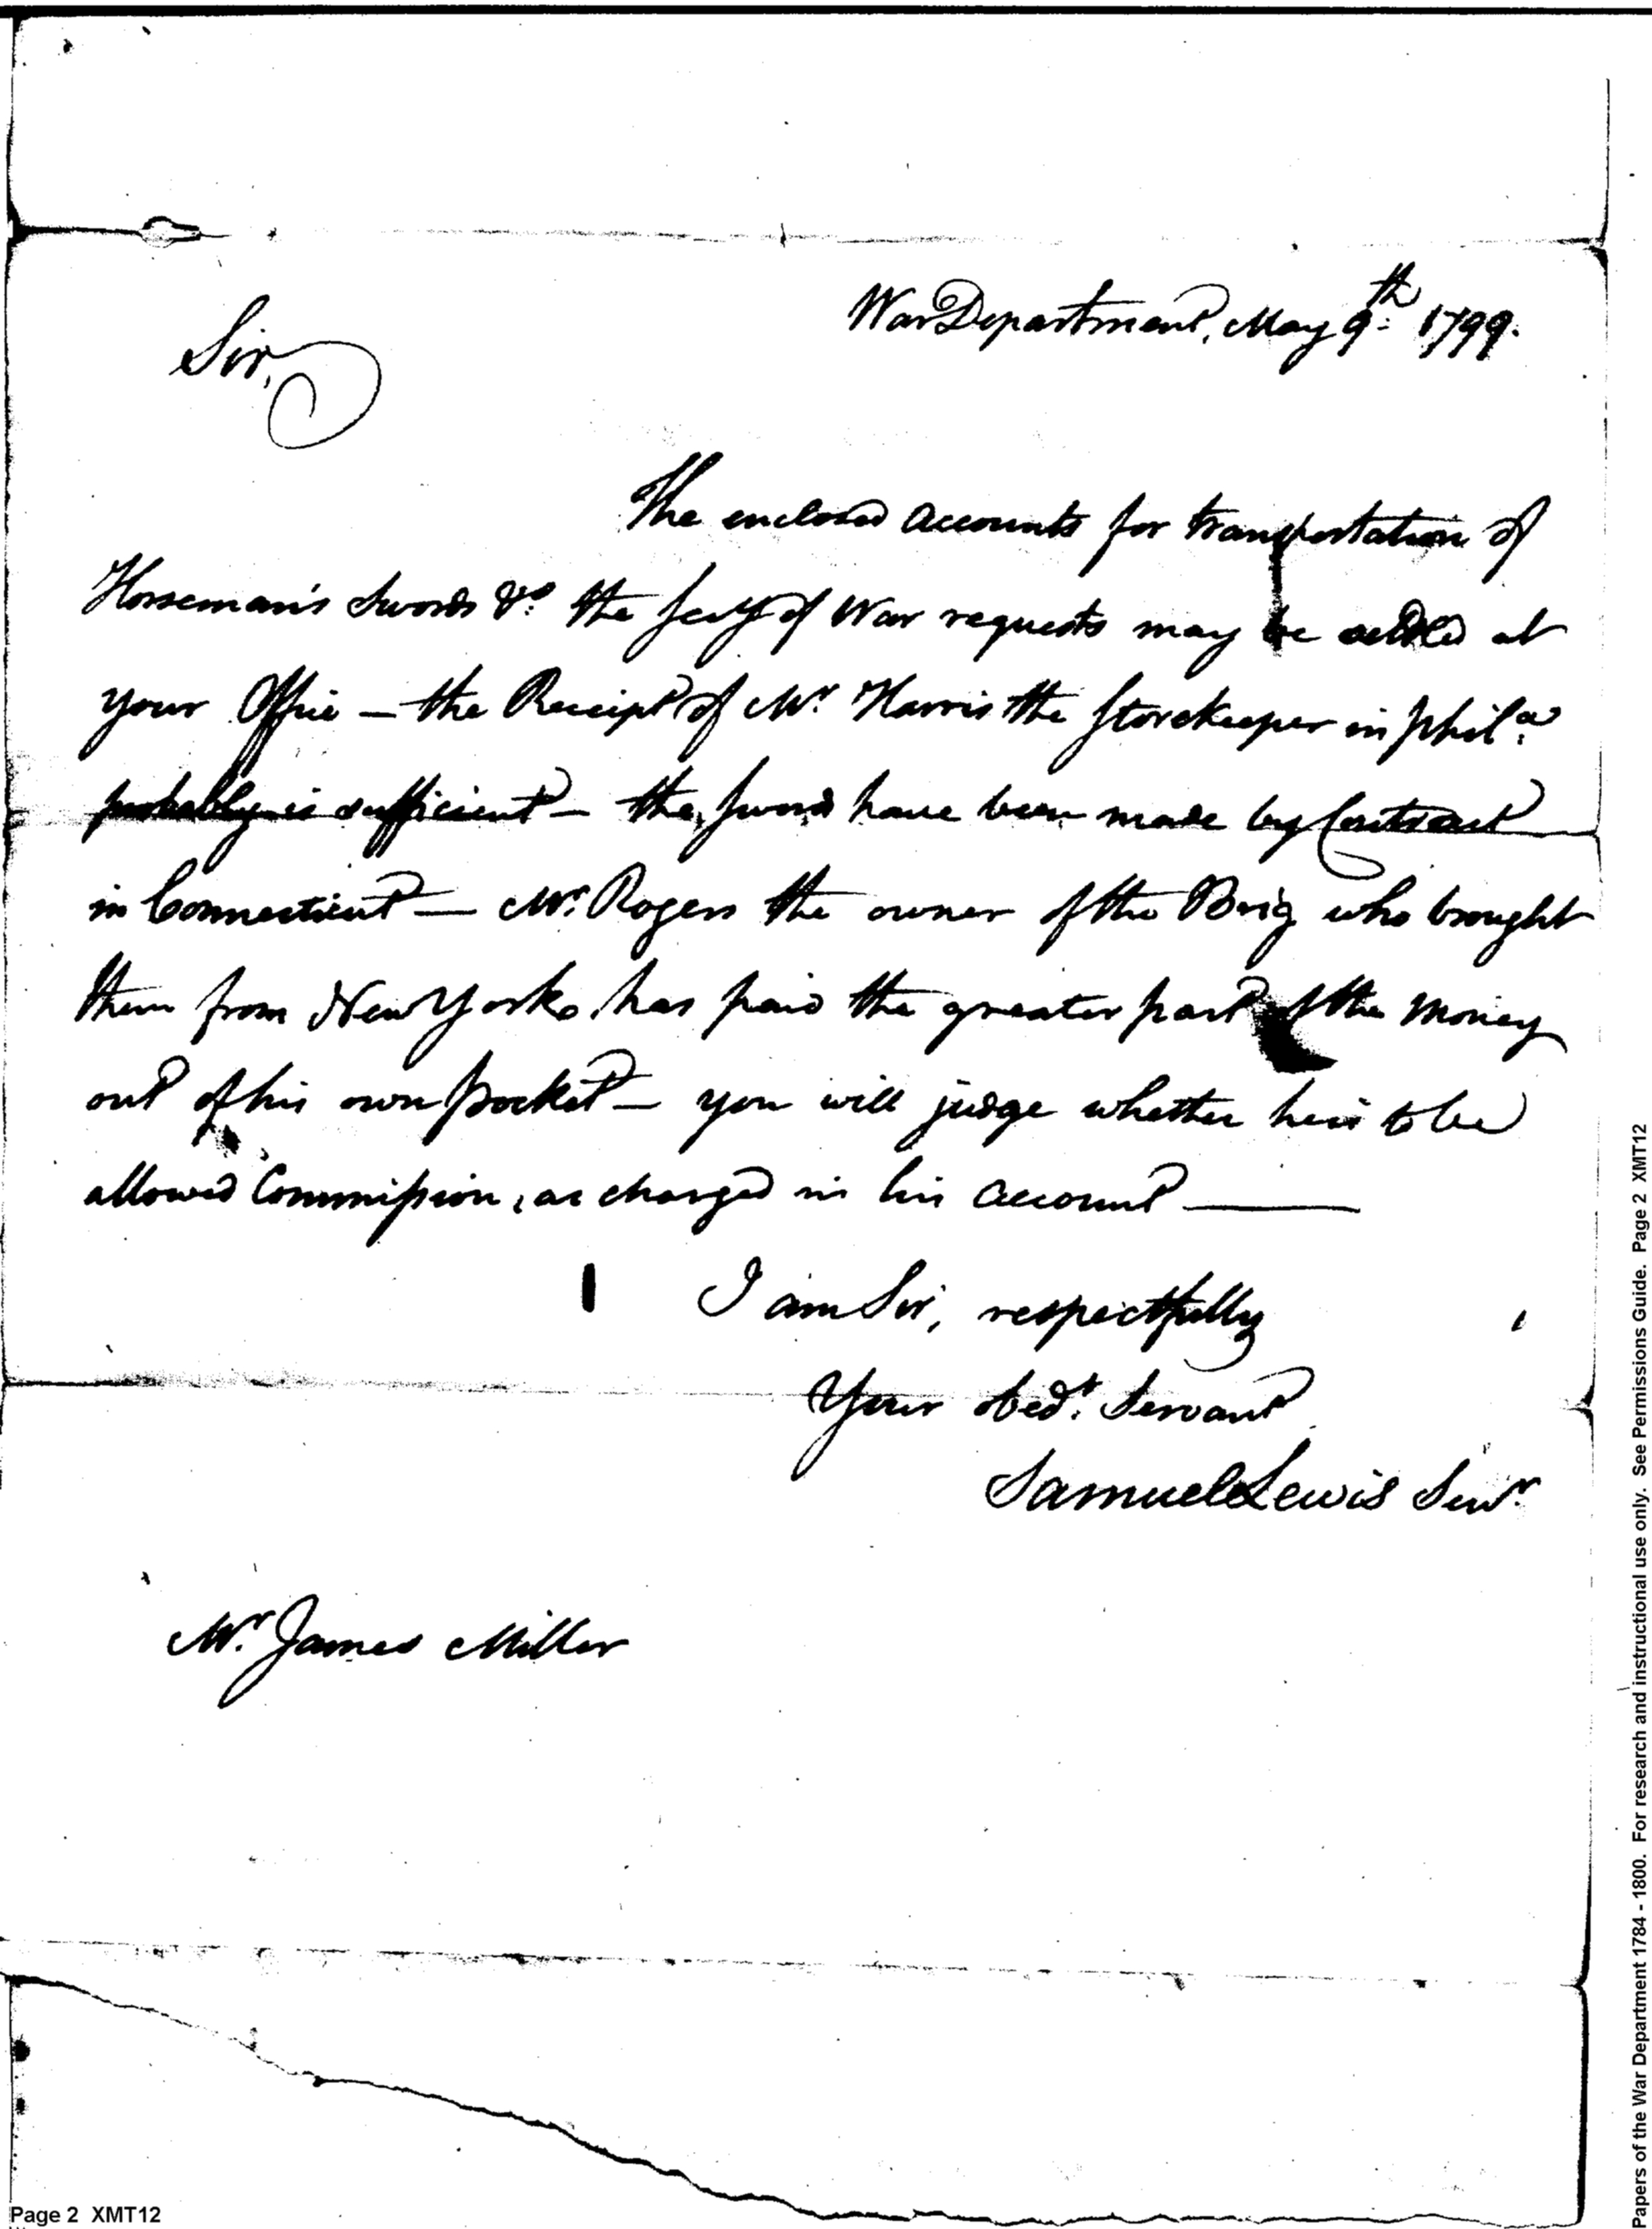 War Department, May 9th. 1799.
Sir,
The enclosed accounts for transportation of
Horseman's Swords &c. the Secy of War requests may be settled at
your Office – the Receipt of Mr. Harris the Storekeeper in Phila.
probably is sufficient – the Swords have been made by Contract
in Connecticut – Mr. Rogers the owner of the Brig who brought
them from New York, has paid the greater part of the money
out of his own pocket – you will judge whether he is to be
allowed Commission, as charged in his account —
I am Sir, respectfully
Your Obedt. Servant
Samuel Lewis Senr.
Mr. James Miller
Page 2 XMT12
Papers of the War Department 1784 - 1800. For research and instructional use only. See Permissions Guide. Page 2 XMT12